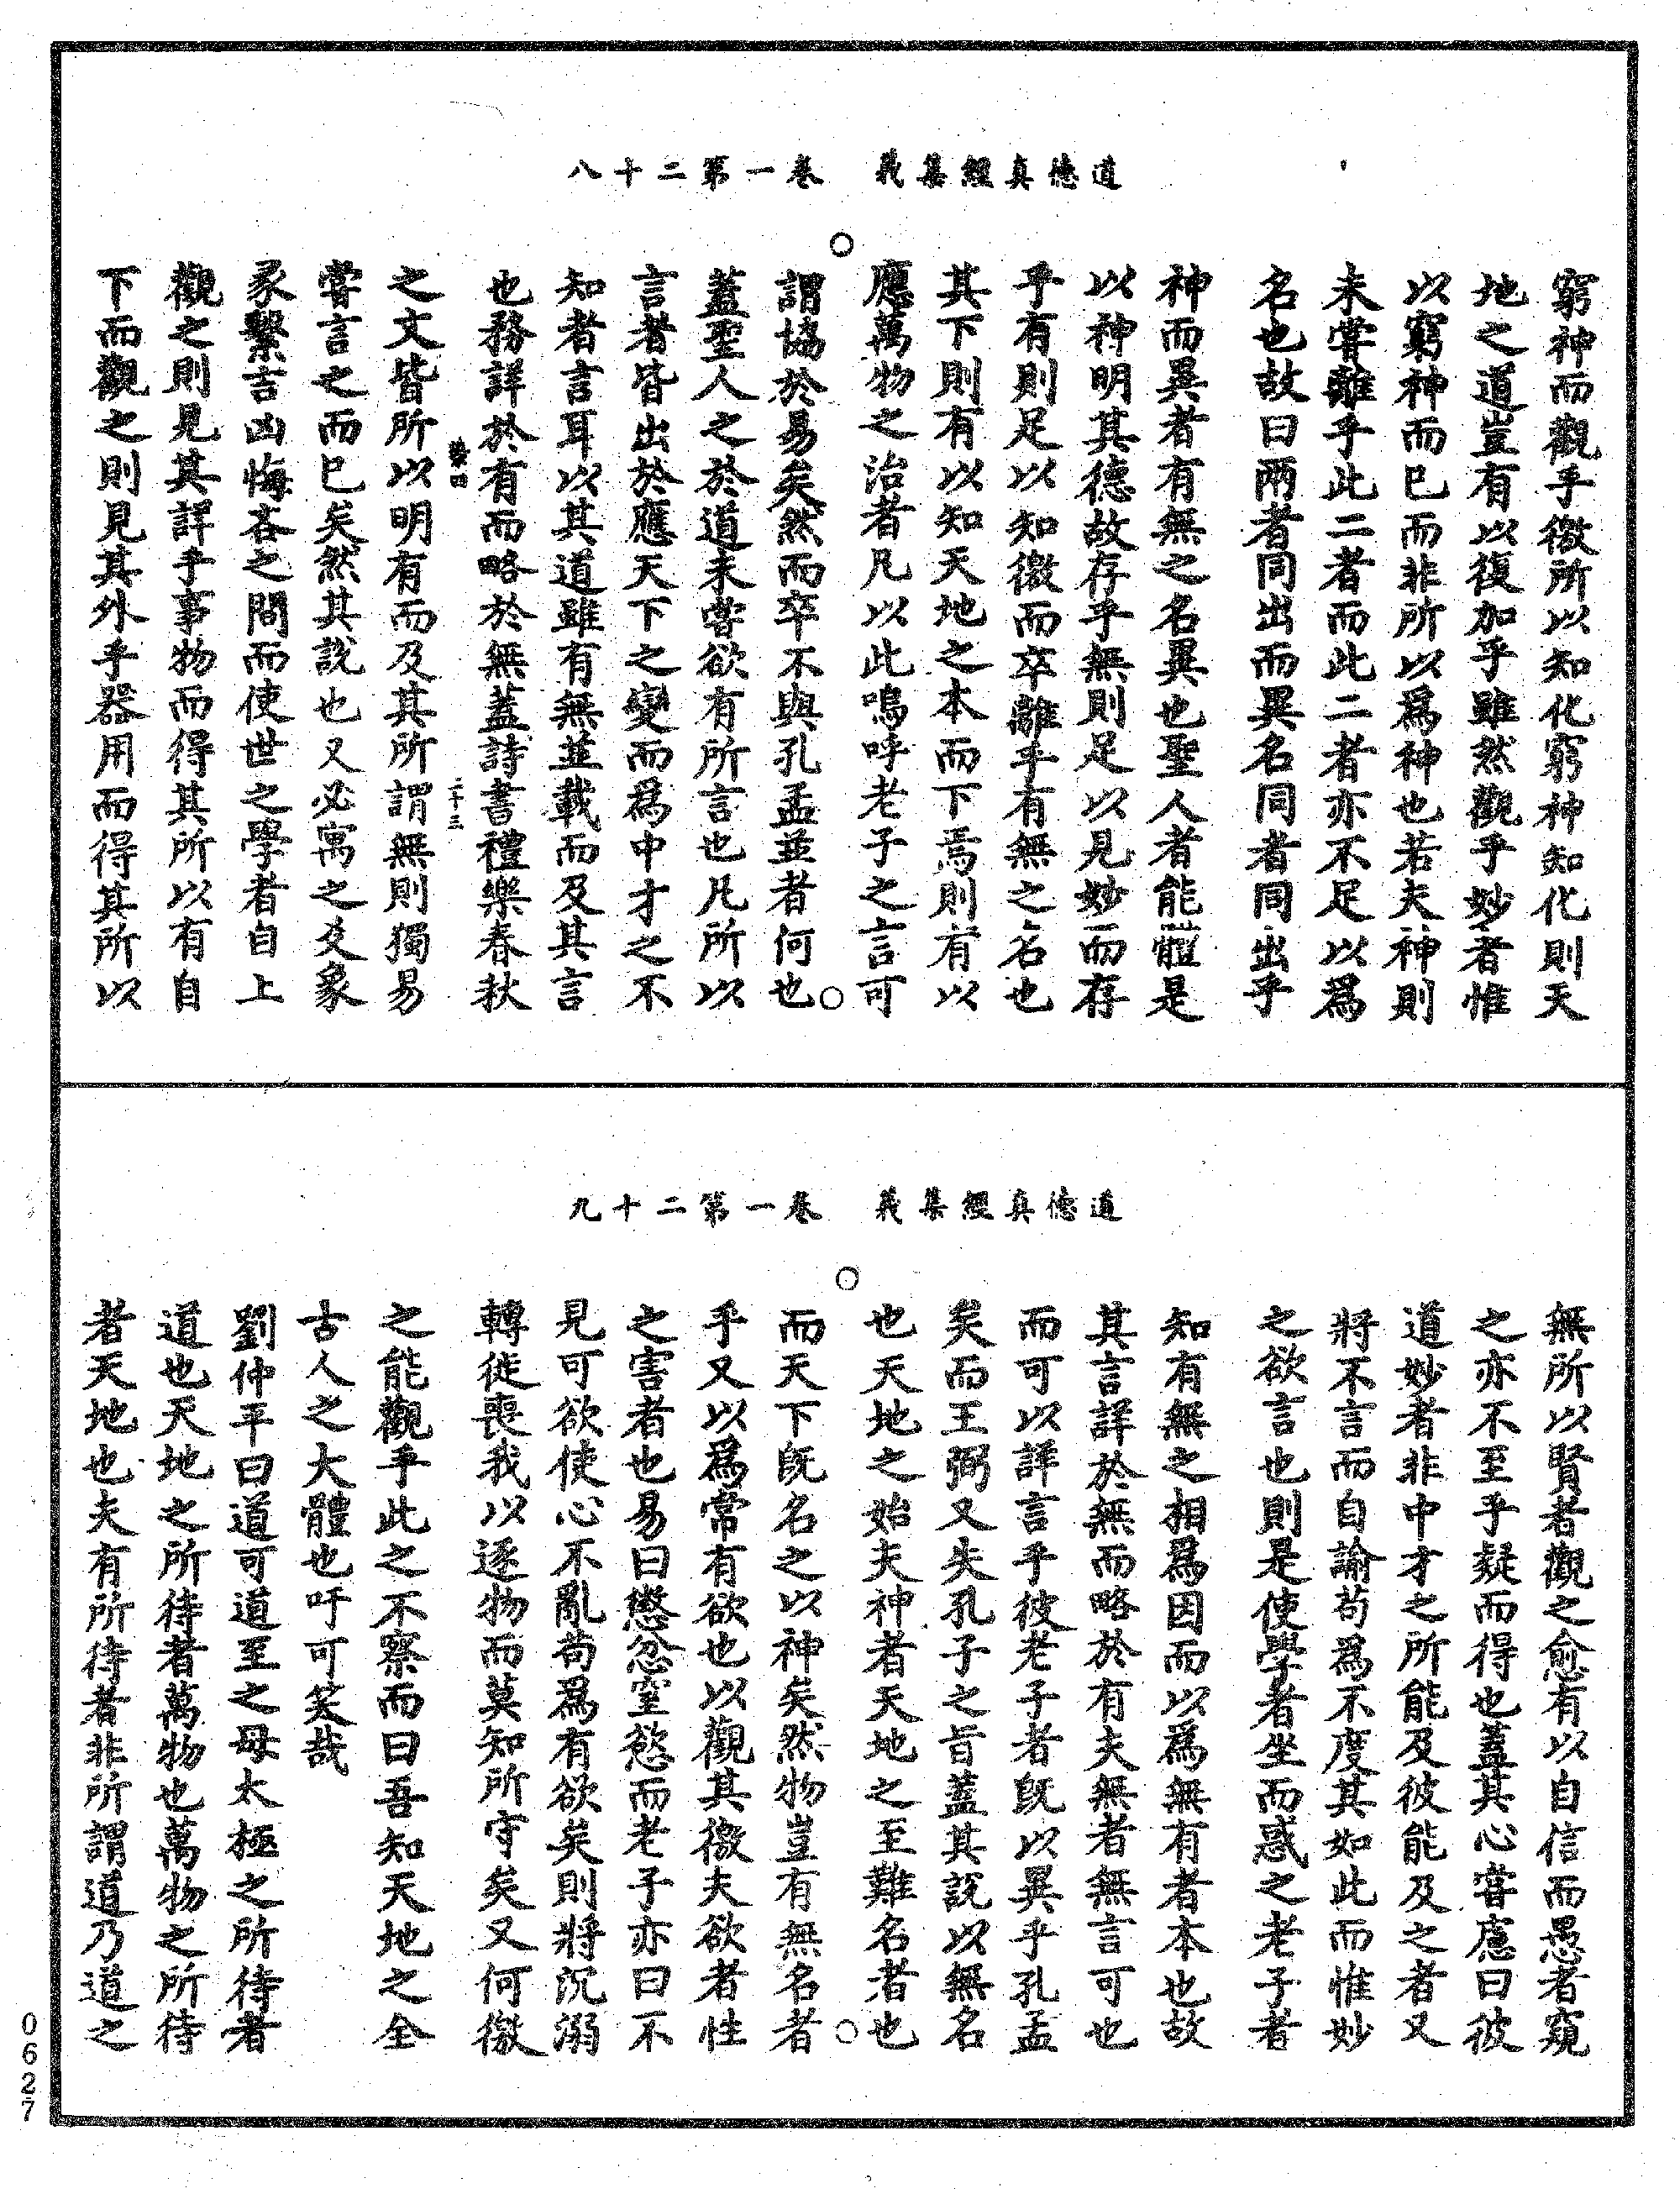 道德真經集義　卷一第二十八
窮神而觀乎徼所以知化窮神知化則天
地之道豈有以復加乎雖然觀乎妙者惟
以窮神而已而非所以為神也若夫神則
未嘗離乎此二者而此二者亦不足以為
名也故曰兩者同出而異名同者同出乎
神而異者有無之名異也聖人者能體是
以神明其德故存乎無則足以見妙而存
乎有則足以知徼而卒離乎有無之名也
其下則有以知天地之本而下焉則有以
應萬物之治者凡以此嗚呼老子之言可
謂協於易矣然而卒不與孔孟並者何也
蓋聖人之於道未嘗欲有所言也凡所以
言者皆出於應天下之變而為中才之不
知者言耳以其道雖有無並載而及其言
也務詳於有而略於無蓋詩書禮樂春秋
二十三
之文皆所以明有而及其所謂無則獨易
嘗言之而已矣然其說也又必寓之爻象
彖繫吉凶悔吝之間而使世之學者自上
觀之則見其詳乎事物而得其所以有自
下而觀之則見其外乎器用而得其所以
道德真經集義　卷一第二十九
無所以賢者觀之愈有以自信而愚者窺
之亦不至乎疑而得也蓋其心嘗慮曰彼
道妙者非中才之所能及彼能及之者又
將不言而自諭苟為不度其如此而惟妙
之欲言也則是使學者坐而惑之老子者
知有無之相為因而以為無有者本也故
其言詳於無而略於有夫無者無言可也
而可以詳言乎彼老子者既以異乎孔孟
矣而王弼又失孔子之旨蓋其說以無名
也天地之始夫神者天地之至難名者也
而天下既名之以神矣然物豈有無名者
乎又以為常有欲也以觀其徼夫欲者性
之害者也易曰懲忿窒慾而老子亦曰不
見可欲使心不亂苟為有欲矣則將沉溺
轉徙喪我以逐物而莫知所守矣又何徼
之能觀乎此之不察而曰吾知天地之全
古人之大體也吁可笑哉
劉仲平曰道可道至之母太極之所待者
道也天地之所待者萬物也萬物之所待
者天地也夫有所待者非所謂道乃道之
0627